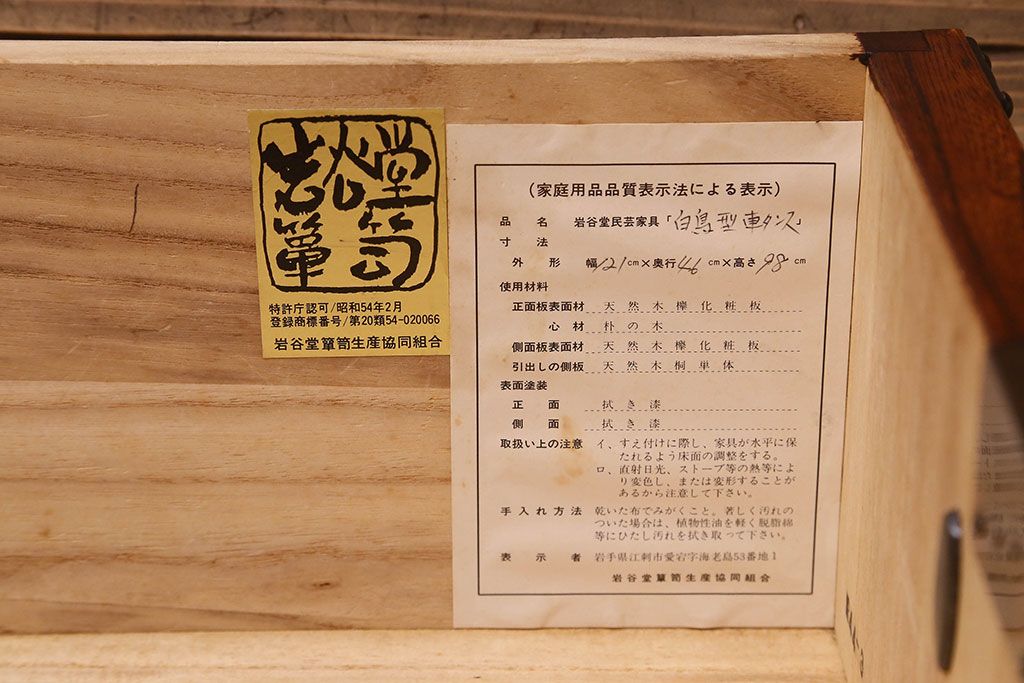 岩谷堂
箪笥
特許庁認可/昭和54年2月
登録商標番号/第20類54-020066
岩谷堂簞笥生産協同組合
(家庭用品品質表示法による表示)
品名 岩谷堂民芸家具「白鳥型車タンス」
寸法
外形 幅121cm×奥行46cm×高さ98cm
使用材料
正面板表面材 天然木欅化粧板
心材 朴の木
側面板表面材 天然木欅化粧板
引出しの側板 天然木桐単体
表面塗装
正面 拭き漆
側面 拭き漆
取扱い上の注意 イ、すえ付けに際し、家具が水平に保
たれるよう床面の調整をする。
ロ、直射日光、ストーブ等の熱等によ
り変色し、または変形することが
あるから注意して下さい。
手入れ方法 乾いた布でみがくこと。著しく汚れの
ついた場合は、植物性油を軽く脱脂綿
等にひたし汚れを拭き取って下さい。
表示者 岩手県江刺市愛宕字海老島53番地1
岩谷堂簞笥生産協同組合